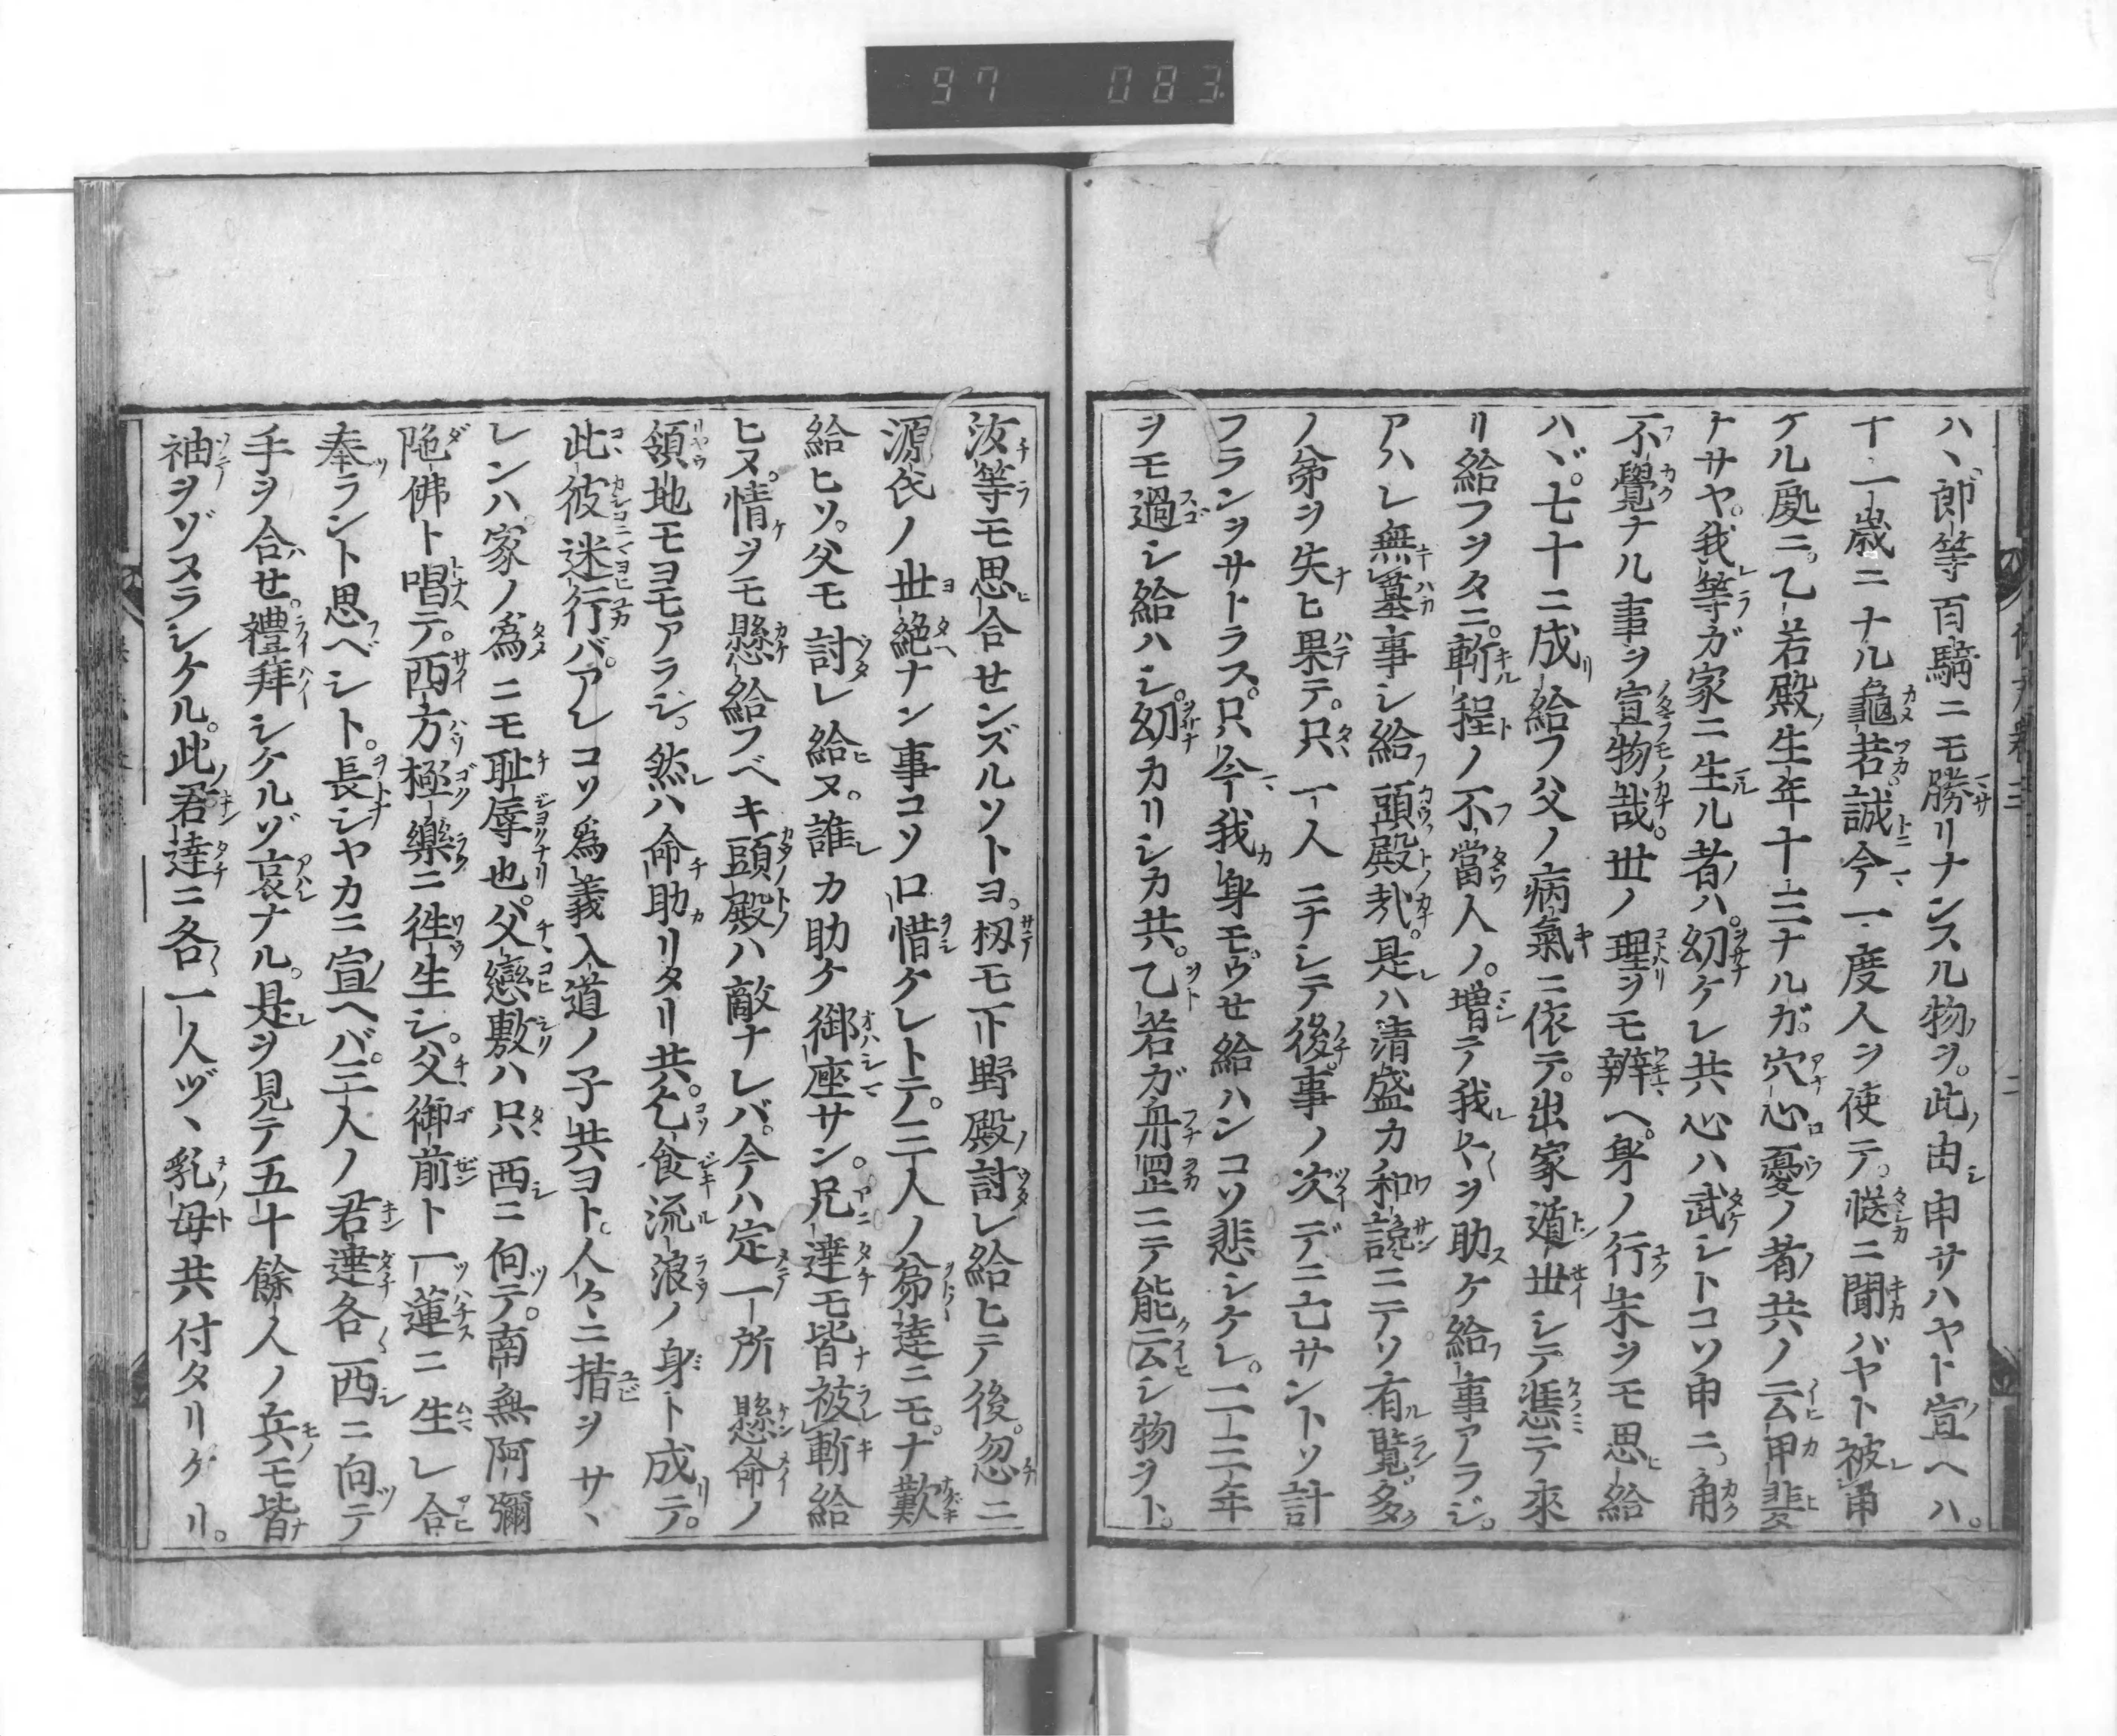 97 083
ハ、郎等百騎ニモ勝リナンスル物ヲ。此由申サハヤト宣ヘハ。
十一歳ニナル龜若。誠今一度人ヲ使テ。慥ニ聞バヤト被申
ケル處ニ。乙若殿生年十三ナルガ。穴心憂ノ者共ノ云甲斐
ナサヤ。我等ガ家ニ生ル者ハ。幼ケレ共心ハ武シトコソ申ニ。角
不覺ナル事ヲ宣物哉。世ノ理ヲモ辨ヘ。身ノ行末ヲモ思給
ハヾ。七十ニ成給フ父ノ病氣ニ依テ。出家遁世シテ憑テ來
リ給フヲタニ。斬程ノ不當人ノ。増テ我々ヲ助ケ給事アラジ。
アハレ無墓事シ給頭殿哉。是ハ清盛カ和讒ニテソ有覧。多
ノ弟ヲ失ヒ果テ。只一人ニナシテ後。事ノ次デニ亡サントソ計
フランヲサトラス。只今我身モウセ給ハンコソ悲シケレ。二三年
ヲモ過シ給ハシ。幼カリシカ共。乙若ガ舟岡ニテ能云シ物ヲト。
汝等モ思合センズルソトヨ。扨モ下野殿討レ給ヒテ後。忽ニ
源氏ノ世絶ナン事コソ口惜ケレトテ。三人ノ弟達ニモ。ナ歎
給ヒソ。父モ討レ給ヌ。誰カ助ケ御座サン。兄達モ皆被斬給
ヒヌ。情ヲモ懸給フベキ頭殿ハ敵ナレバ。今ハ定一所懸命ノ
領地モヨモアラジ。然ハ命助リタリ共。乞食流浪ノ身ト成テ。
此彼迷行バ。アレコソ爲義入道ノ子共ヨト。人々ニ指ヲサヽ
レンハ。家ノ爲ニモ耻辱也。父戀敷ハ只西ニ向テ。南無阿彌
陁佛ト唱テ。西方極樂ニ徃生シ。父御前ト一蓮ニ生レ合
奉ラント思ベシト。長シヤカニ宣ヘバ。三人ノ君達各西ニ向テ
手ヲ合セ。禮拜シケルゾ哀ナル。是ヲ見テ五十餘人ノ兵モ皆
袖ヲゾヌラシケル。此君達ニ各一人ヅヽ乳母共付タリケリ。